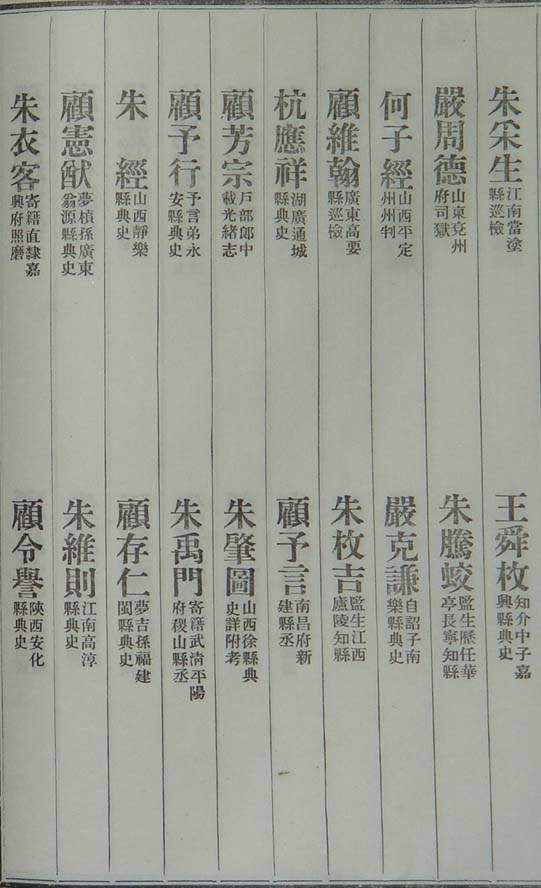 朱采生 江南當塗縣巡檢
王舜枚 知介中子嘉興縣典史
嚴周德 山東兗州府司獄
朱騰蛟 監生歷任華亭長寧知縣
何子經 山西平定州州判
嚴克謙 自詔子南樂縣典史
顧維翰 廣東高要縣巡檢
朱枚吉 監生江西廬陵知縣
杭應祥 湖廣通城縣典史
顧予言 南昌府新建縣丞
顧芳宗 戶部郎中載光緒志
朱肇圖 山西徐縣典史詳附考
顧予行 予言弟永安縣典史
朱禹門 寄籍武清平陽府稷山縣丞
朱經 山西靜樂縣典史
顧存仁 夢吉孫福建閩縣典史
顧憲猷 夢楨孫廣東翁源縣典史
朱維則 江南高淳縣典史
朱衣客 寄籍直隸嘉興府照磨
顧令譽 陝西安化縣典史